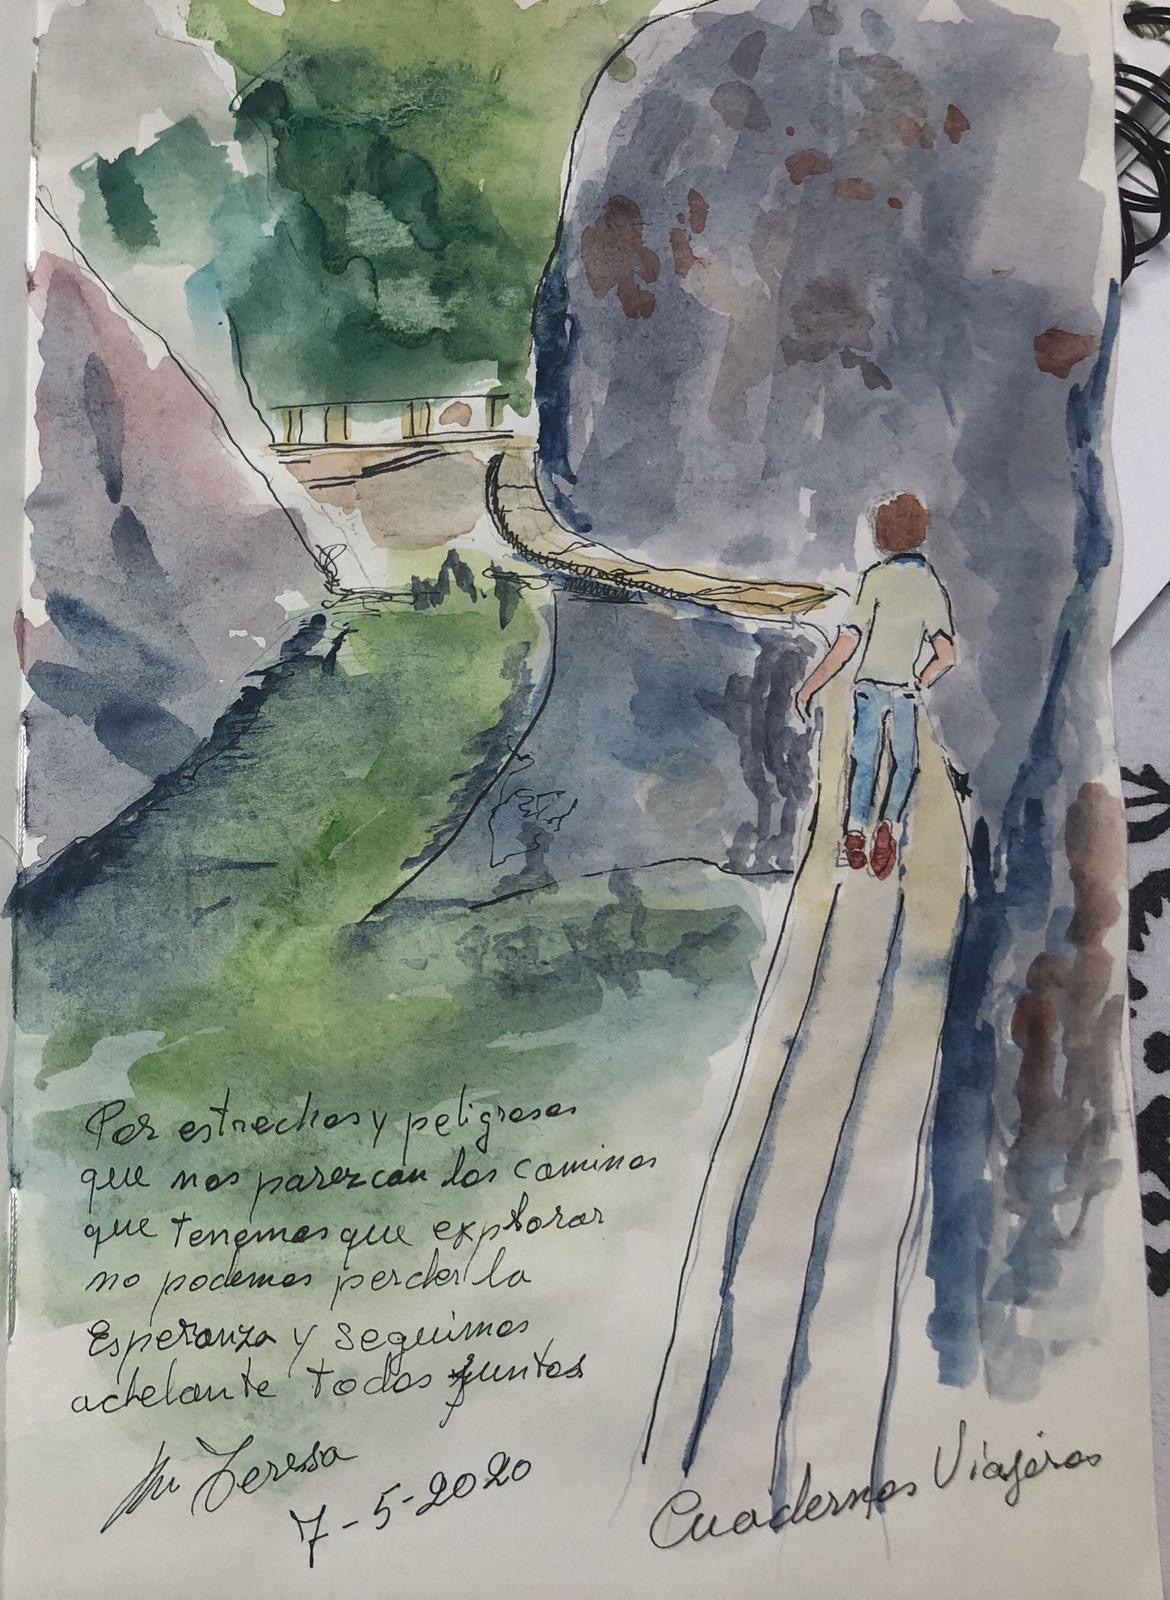 Por estrechos y peligrosos
que nos parezcan los caminos
que tenemos que explorar
no podemos perder la
Esperanza y seguimos
adelante todos juntos
Mª Teresa
7-5-2020
Cuadernos Viajeros